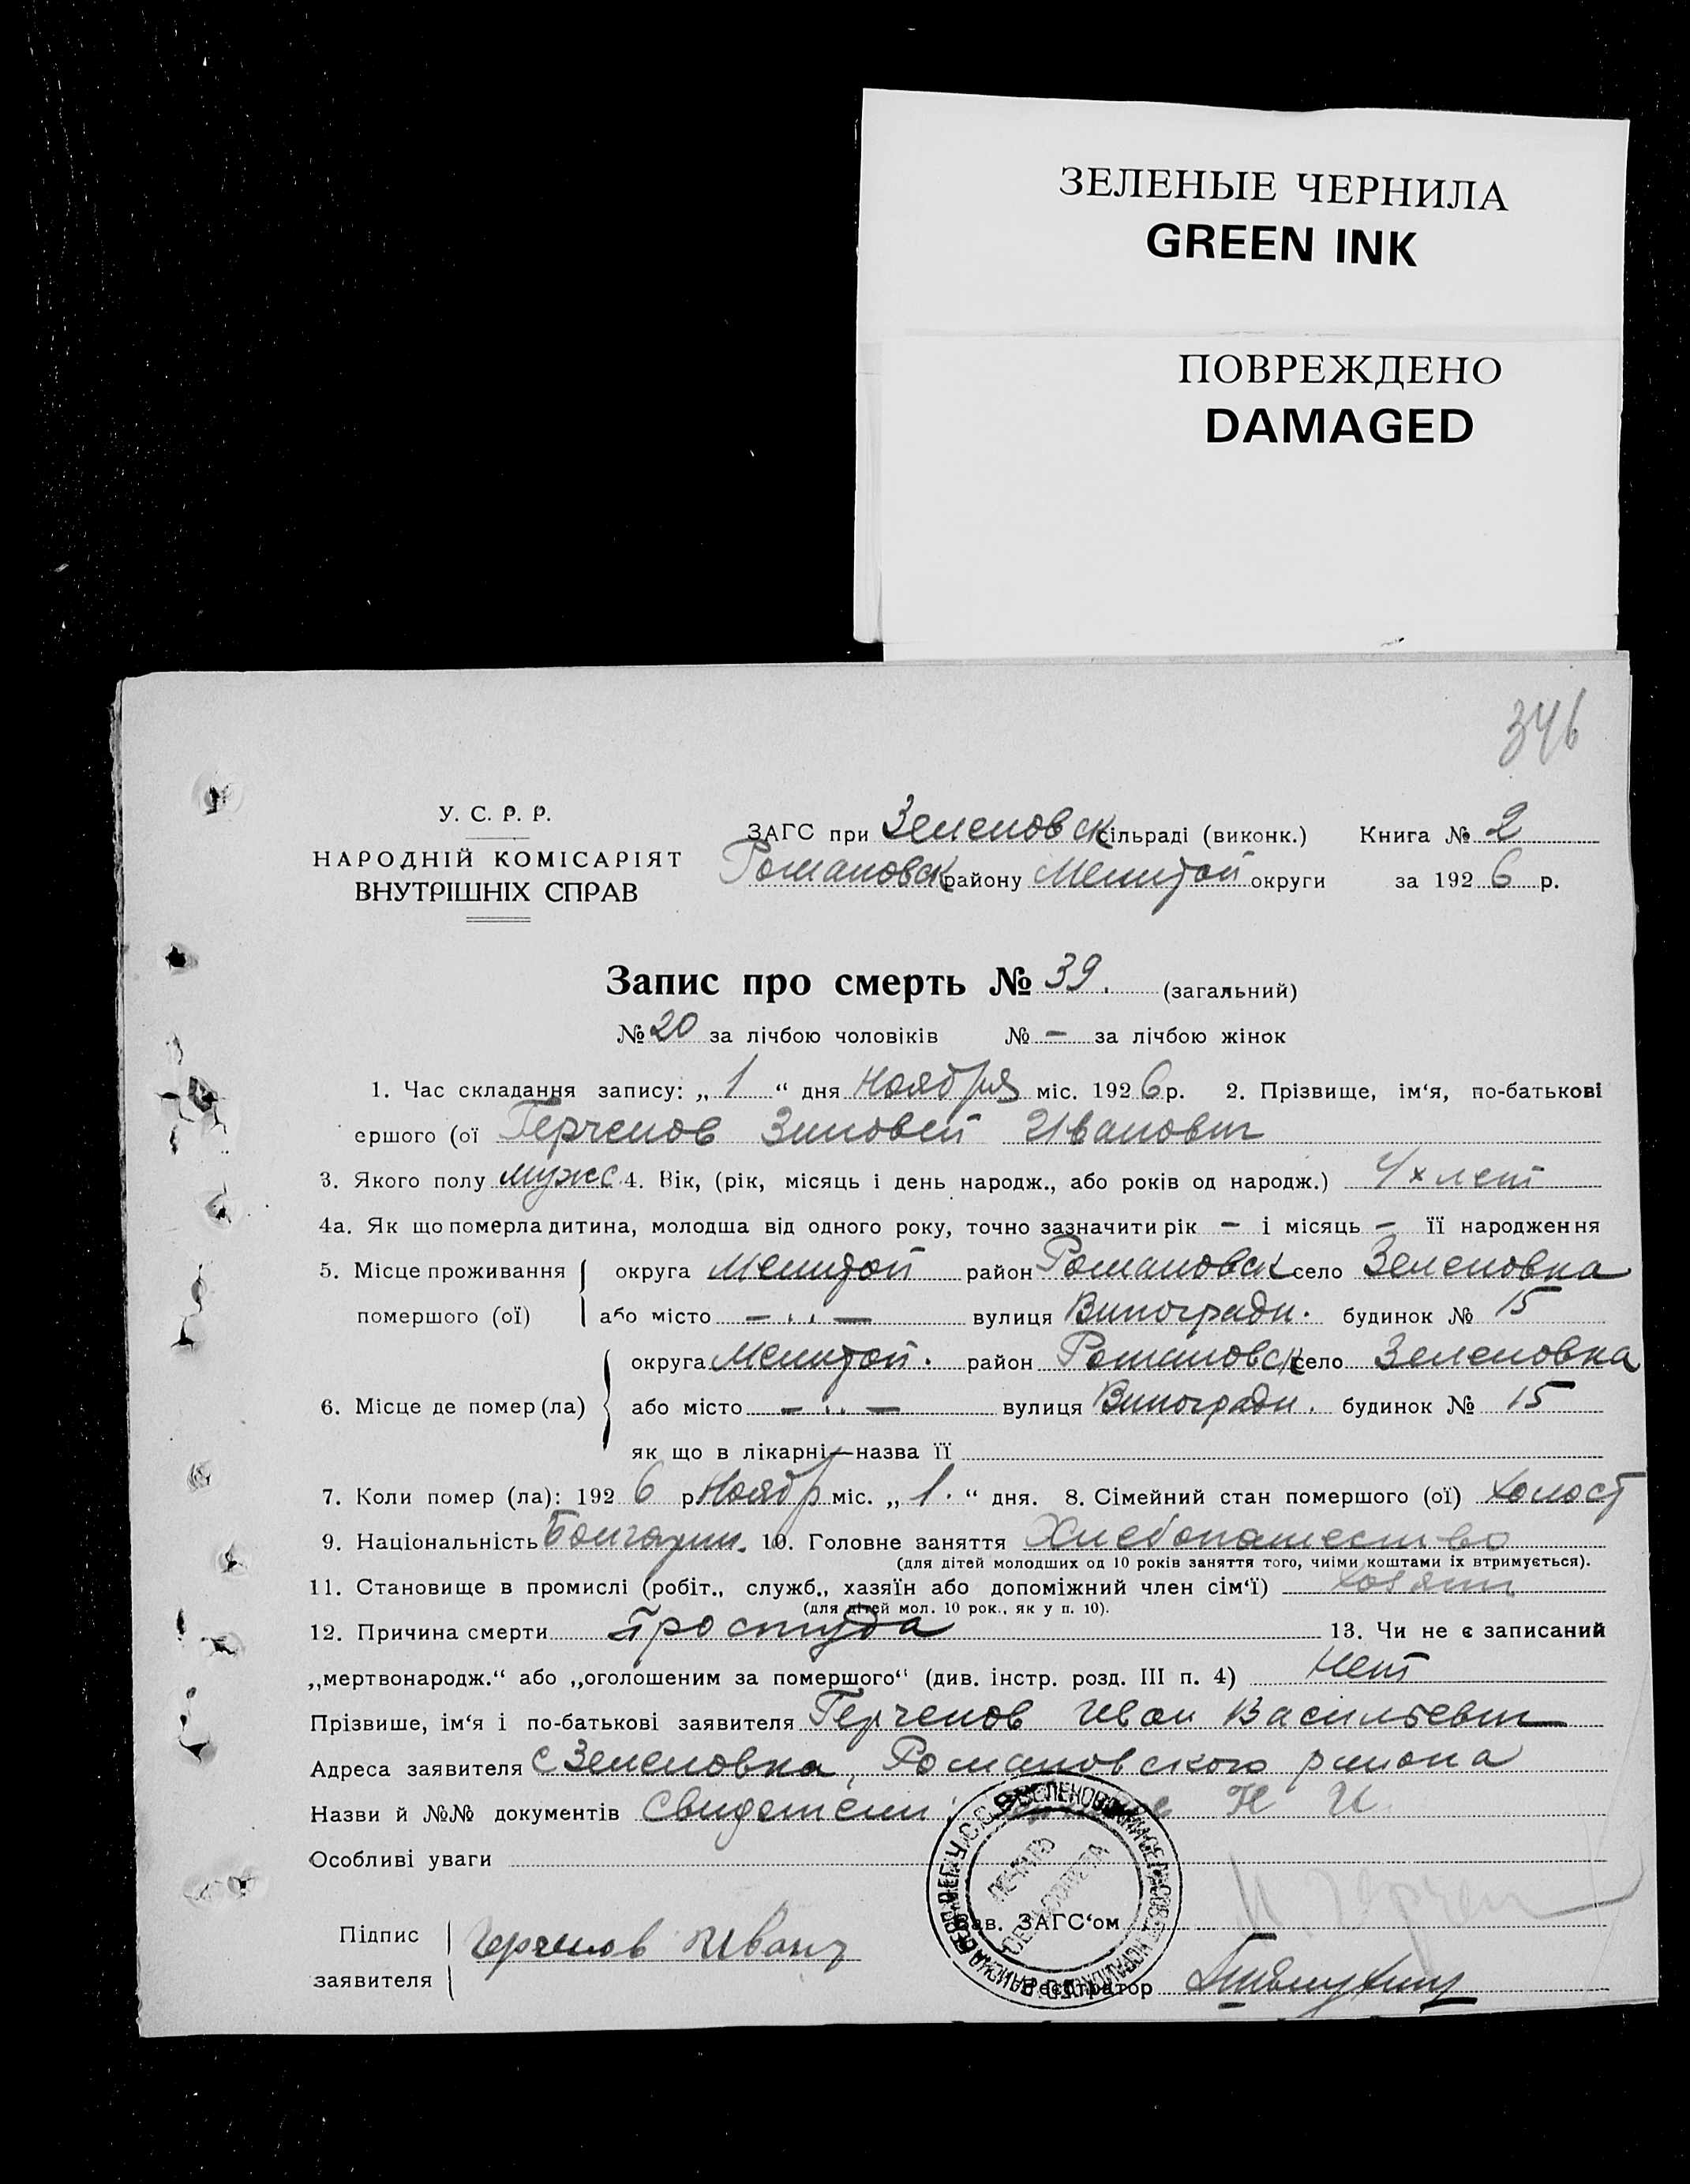 ЗЕЛЕНЫЕ ЧЕРНИЛА
GREEN INK
ПОВРЕЖДЕНО
DAMAGED
346
У. С. Р. Р.
НАРОДНІЙ КОМІСАРІЯТ
ВНУТРІШНІХ СПРАВ
ЗАГС при Зеленовск сільраді (виконк.) Книга № 2
Романовск району Мелитоп округи за 1926 р.
Запис про смерть № 39. (загальний)
№ 20 за лічбою чоловіків № — за лічбою жінок
1. Час складання запису: „ 1 “ дня Ноября міс. 1926 р. 2. Прізвище, ім‘я, по-батькові
ершого (ої Герченов Зиновей Иванович
3. Якого полу мужс 4. Вік, (рік, місяць і день народж., або років од народж.) 4х лет
4а. Як що померла дитина, молодша від одного року, точно зазначити рік — і місяць — її народження
5. Місце проживання округа Мелитоп район Романовск село Зеленовка
помершого (ої) або місто — „ — вулиця Виноградн. будинок № 15
округа Мелитоп. район Романовск село Зеленовка
6. Місце де помер (ла) або місто — „ — вулиця Виноградн. будинок № 15
як що в лікарні—назва її
7. Коли помер (ла): 1926 р Ноябр міс. „ 1. “ дня. 8. Сімейний стан помершого (ої) холост
9. Національність Болгарин. 10. Головне заняття Хлебопашество
(для дітей молодших од 10 років заняття того, чиіми коштами іх втримується).
11. Становище в промислі (робіт., служб., хазяїн або допоміжний член сім‘ї) хозяин
(для дітей мол. 10 рок., як у п. 10).
12. Причина смерти Простуда 13. Чи не є записаний
„мертвонародж.“ або „оголошеним за помершого“ (див. інстр. розд. III п. 4) Нет
Прізвише, ім‘я і по-батькові заявителя Герченов Иван Васильевич
Адреса заявителя с Зеленовка, Романовского района
Назви й №№ документів Свидетели: Н И
Особливі уваги
Підпис Герченов Иван
заявителя
Зав. ЗАГС‘ом
Реєстратор